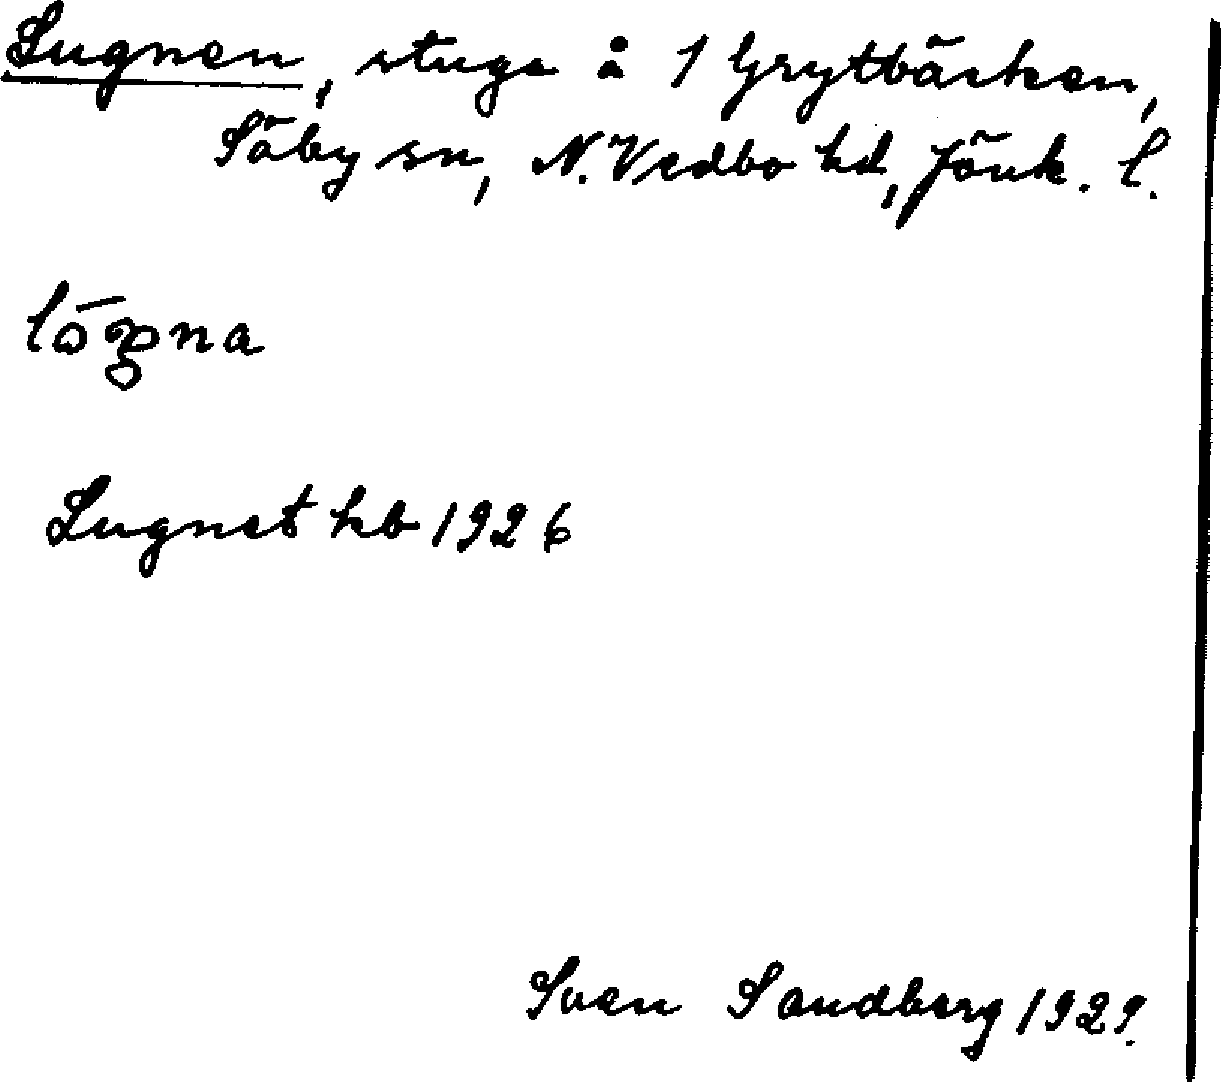 Lugnen, stuga å 1 Grytbäcken,
Säby sn, N. Vedbo hd, Jönk. l.
Lugnet hb 1926
Sven Sandberg 1929.